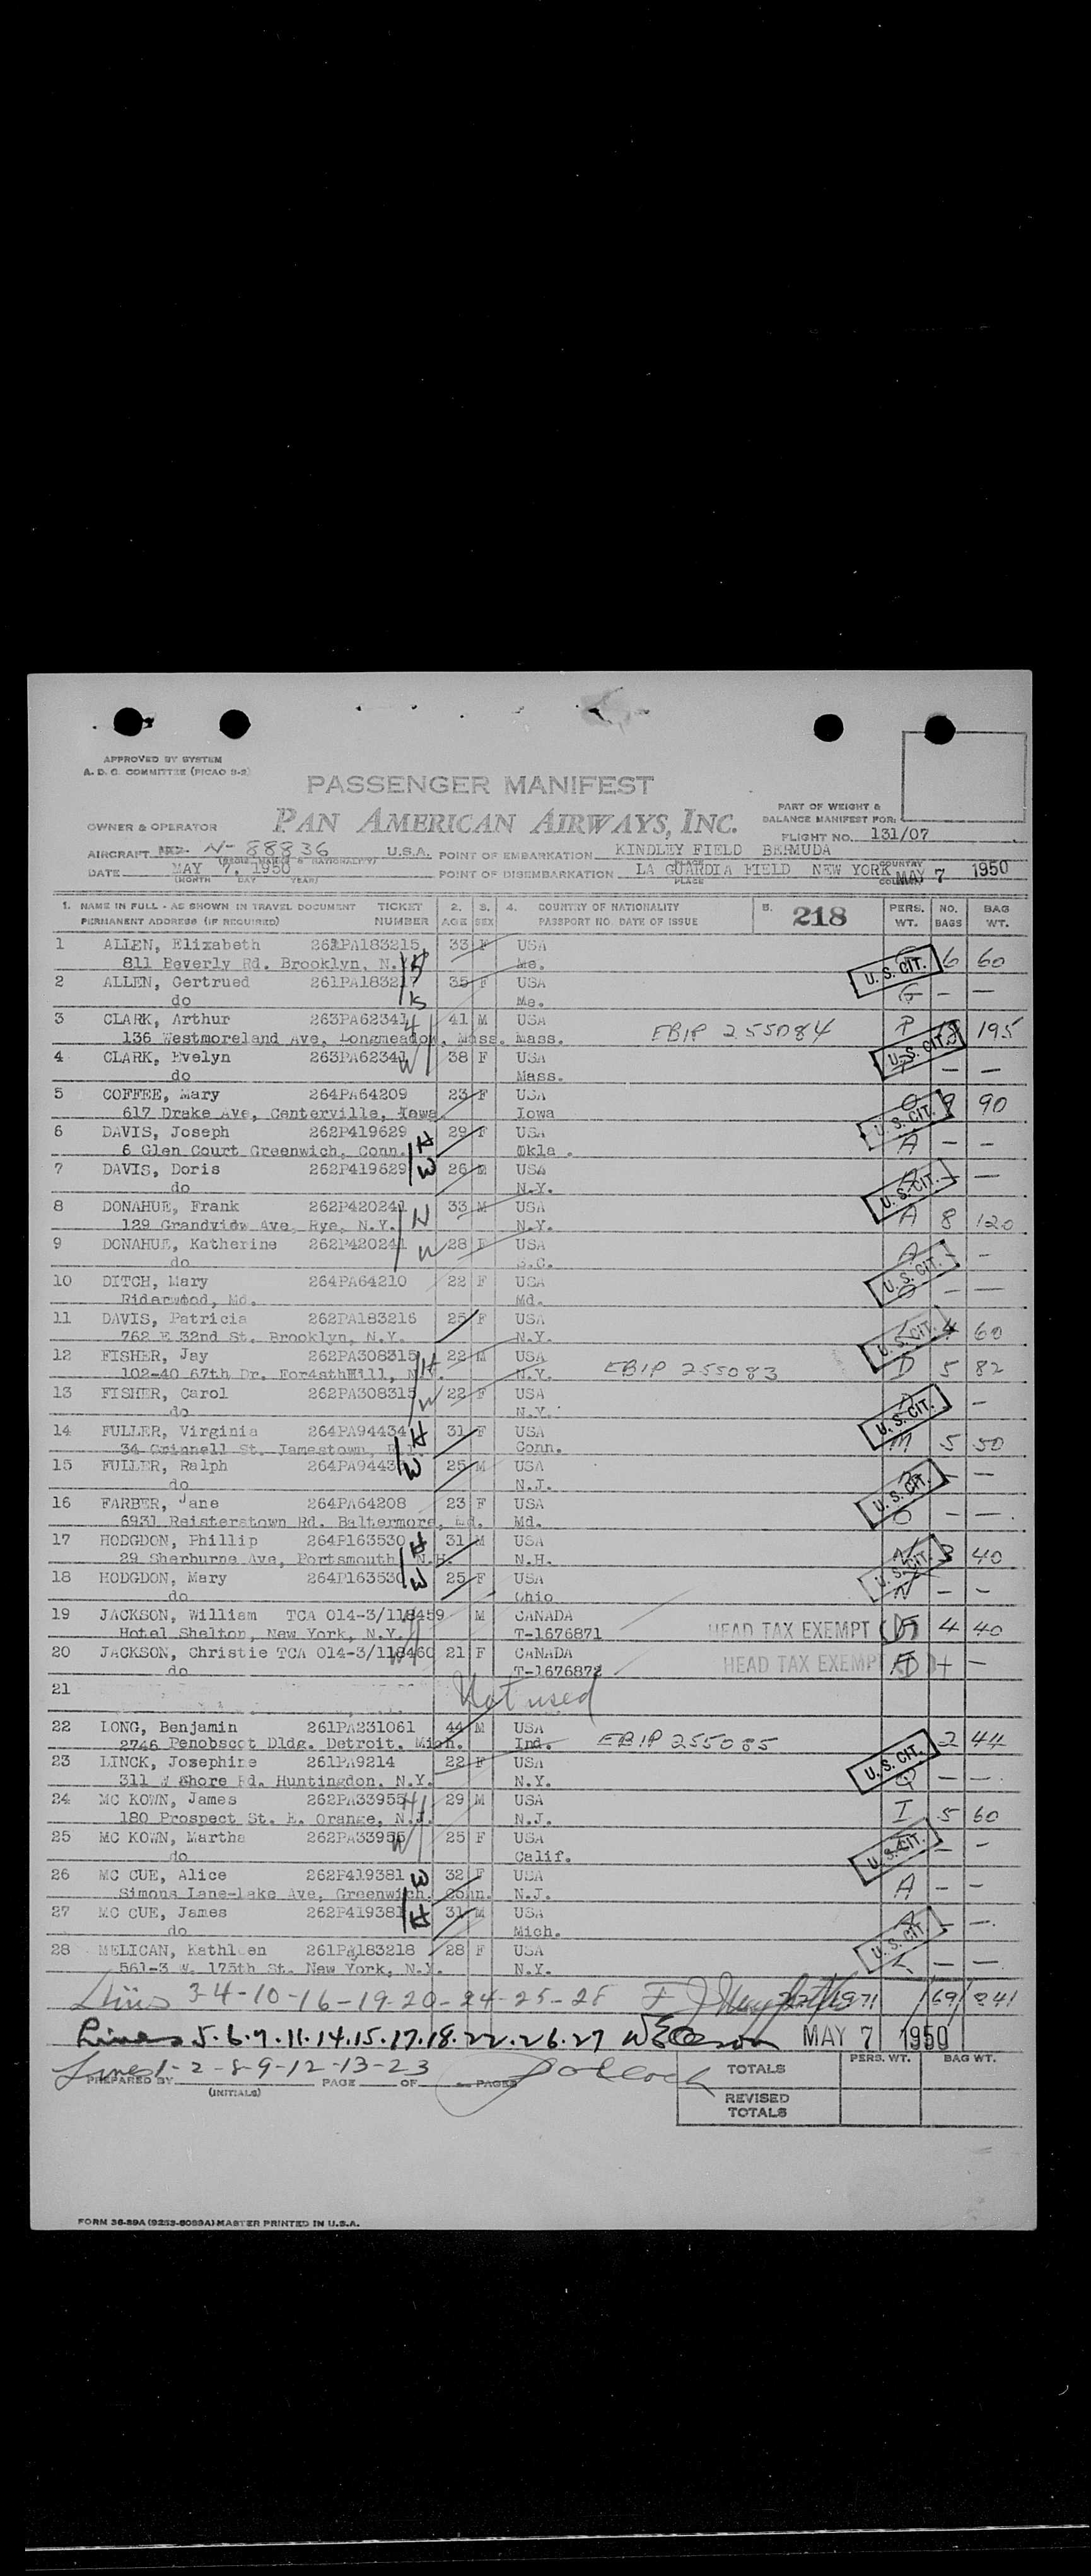 APPROVED BY SYSTEM
A. D. C. COMMITTEE (PICAO 9-2)
PASSENGER MANIFEST
PART OF WEIGHT &
BALANCE MANIFEST FOR:
OWNER & OPERATOR PAN AMERICAN AIRWAYS, INC.
FLIGHT NO. 131/07
AIRCRAFT N-88836 U.S.A. POINT OF EMBARKATION KINDLEY FIELD BERMUDA
DATE MAY 7, 1950 POINT OF DISEMBARKATION LA GUARDIA FIELD NEW YORK MAY 7 1950
(MONTH DAY YEAR) PLACE COUNTRY
1. NAME IN FULL - AS SHOWN IN TRAVEL DOCUMENT TICKET 2. 3. 4. COUNTRY OF NATIONALITY 5. 218 PERS. NO. BAG
PERMANENT ADDRESS (IF REQUIRED) NUMBER AGE SEX PASSPORT NO. DATE OF ISSUE WT. BAGS WT.
1 ALLEN, Elizabeth 261PA183215 33 F USA
811 Beverly Rd. Brooklyn, N.Y. Me. U.S. CIT. 6 60
2 ALLEN, Gertrued 261PA183217 35 F USA
do Me. G - -
3 CLARK, Arthur 263PA62341 41 M USA
136 Westmoreland Ave, Longmeadow, Mass. Mass. EBIP 255084 P 195
4 CLARK, Evelyn 263PA62341 W 38 F USA U.S. CIT.
do Mass. - -
5 COFFEE, Mary 264PA64209 23 F USA
617 Drake Ave, Centerville, Iowa Iowa U.S. CIT. 9 90
6 DAVIS, Joseph 262P419629 H 29 F USA
6 Glen Court Greenwich, Conn. Okla . A - -
7 DAVIS, Doris 262P419629 W 26 M USA
do N.Y. U.S. CIT. - -
8 DONAHUE, Frank 262P420241 H 33 M USA
129 Grandview Ave, Rye, N.Y. N.Y. A 8 120
9 DONAHUE, Katherine 262P420241 W 28 F USA
do S.C. U.S. CIT. - -
10 DITCH, Mary 264PA64210 22 F USA
Riderwood, Md. Md. - -
11 DAVIS, Patricia 262PA183216 25 F USA
762 E 32nd St, Brooklyn, N.Y. N.Y. U.S. CIT. 4 60
12 FISHER, Jay 262PA308315 H 22 M USA
102-40 67th Dr, For4stHill, N.Y. N.Y. EBIP 255083 D 5 82
13 FISHER, Carol 262PA308315 W 22 F USA
do N.Y. U.S. CIT. -
14 FULLER, Virginia 264PA94434 H 31 F USA
34 Grinnell St. Jamestown, R.I. Conn. M 5 50
15 FULLER, Ralph 264PA9443 W 25 M USA
do N.J. U.S. CIT. - -
16 FARBER, Jane 264PA64208 23 F USA
6931 Reisterstown Rd. Baltermore, Md. Md. O - -
17 HODGDON, Phillip 264P163530 H 31 M USA
29 Sherburne Ave, Portsmouth, N.H. N.H. U.S. CIT. 3 40
18 HODGDON, Mary 264P163530 W 25 F USA
do Ohio - -
19 JACKSON, William TCA 014-3/118459 M CANADA
Hotel Shelton, New York, N.Y. T-1676871 HEAD TAX EXEMPT 4 40
20 JACKSON, Christie TCA 014-3/118460 W 21 F CANADA
do T-1676872 HEAD TAX EXEMPT -
21 Not used
22 LONG, Benjamin 261PA231061 44 M USA
2746 Penobscot Dldg. Detroit, Mich. Ind. EBIP 255085 2 44
23 LINCK, Josephine 261PA9214 22 F USA U.S. CIT.
311 W Shore Rd. Huntingdon, N.Y. N.Y. - -
24 MC KOWN, James 262PA33955 H 29 M USA
180 Prospect St. E. Orange, N.J. N.J. I 5 60
25 MC KOWN, Martha 262PA33955 W 25 F USA
do Calif. U.S. CIT. - -
26 MC CUE, Alice 262P419381 W 32 F USA
Simons Lane-Lake Ave, Greenwich, Conn. N.J. A - -
27 MC CUE, James 262P419381 H 31 M USA
do Mich. U.S. CIT. - -
28 MELICAN, Kathleen 261PA183218 28 F USA
561-3 W. 175th St. New York, N.Y. N.Y. - -
3-4-10-16-19-20-24-25-28 169 841
Lines 5.6.7.11.14.15.17.18.22.26.27 MAY 7 1950
Lines 1-2-8-9-12-13-23 Pollock
PREPARED BY (INITIALS) PAGE OF PAGES TOTALS PERS. WT. BAG WT.
REVISED
TOTALS
FORM 36-89A (9253-6089A) MASTER PRINTED IN U.S.A.